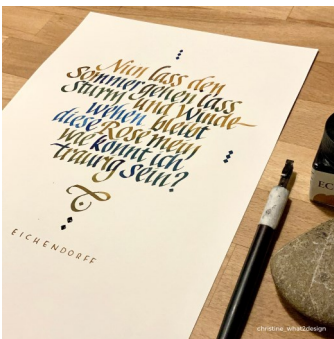 Nun lass den
Sommer gehen lass
Sturm und Winde
wehen bleibt
diese Rose mein
wie könnt ich
traurig sein?
EICHENDORFF
EC
christine_what2design